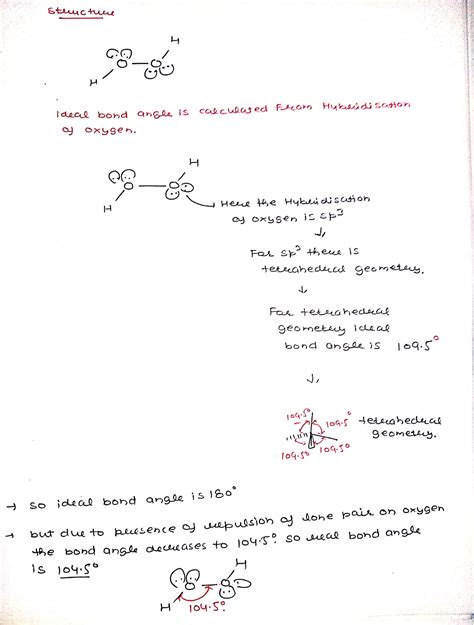 Structure
H
O — O
H
Ideal bond angle is calculated From Hybridisation
of oxygen.
H
O — O
H
Here the Hybridisation
of oxygen is sp³
For sp³ there is
tetrahedral geometry.
For tetrahedral
geometry ideal
bond angle is 109.5°
109.5° 109.5° tetrahedral
geometry.
109.5° 109.5°
→ so ideal bond angle is 180°
→ but due to presence of repulsion of lone pair on oxygen
the bond angle decreases to 104.5° so real bond angle
is 104.5°
H
O — O
H 104.5°